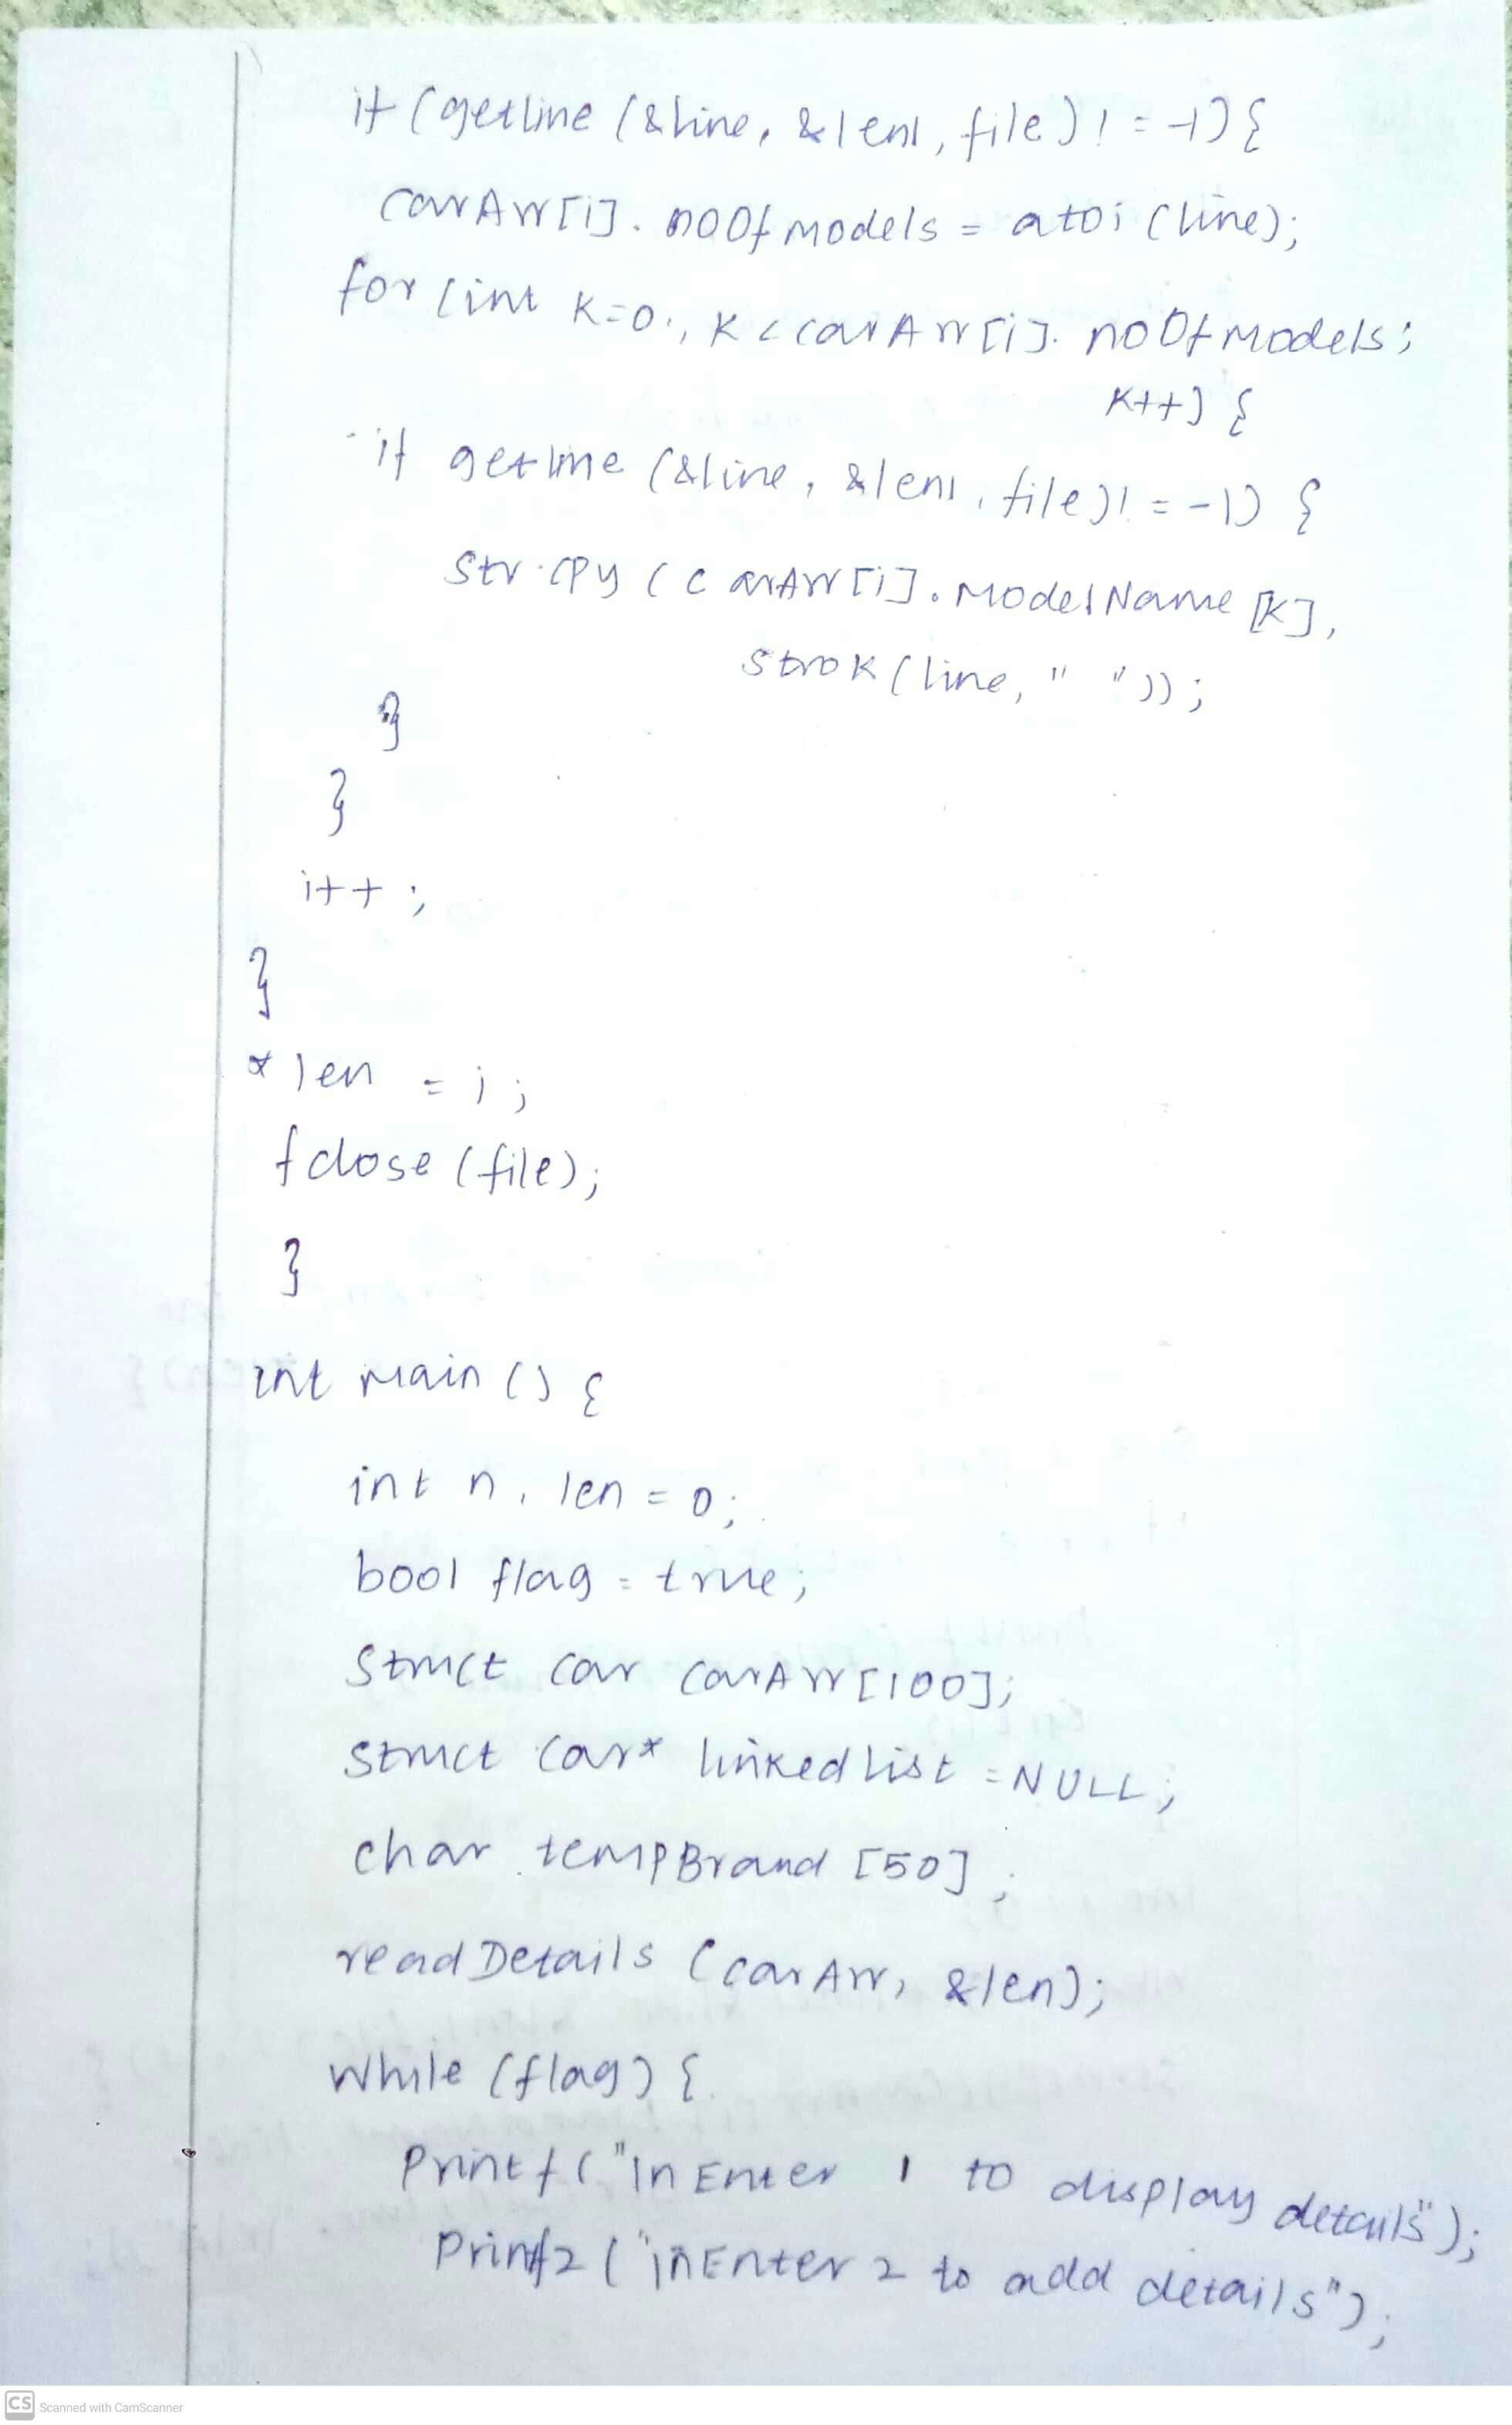 if (getline (&line, &len1, file) != -1) {
carArr[i]. noOfModels = atoi (line);
for (int k=0; k < carArr[i]. noOfModels;
k++) {
if getline (&line, &len1, file) != -1) {
str cpy (carArr[i]. ModelName [k],
strok (line, " "));
}
}
i++ ;
}
* len = i ;
fclose (file);
}
int main () {
int n, len = 0;
bool flag = true;
struct car carArr [100];
struct car* linked list = NULL;
char tempBrand [50];
readDetails (carArr, &len);
while (flag) {
Printf ("\n Enter 1 to display details");
Printf2 ("\n Enter 2 to add details");
CS Scanned with CamScanner